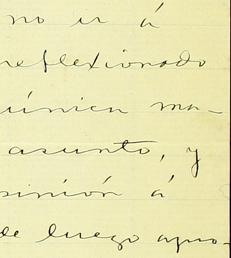 no ir á
reflexionado
única ma-
asunto, y
pinión á
de luego apro-